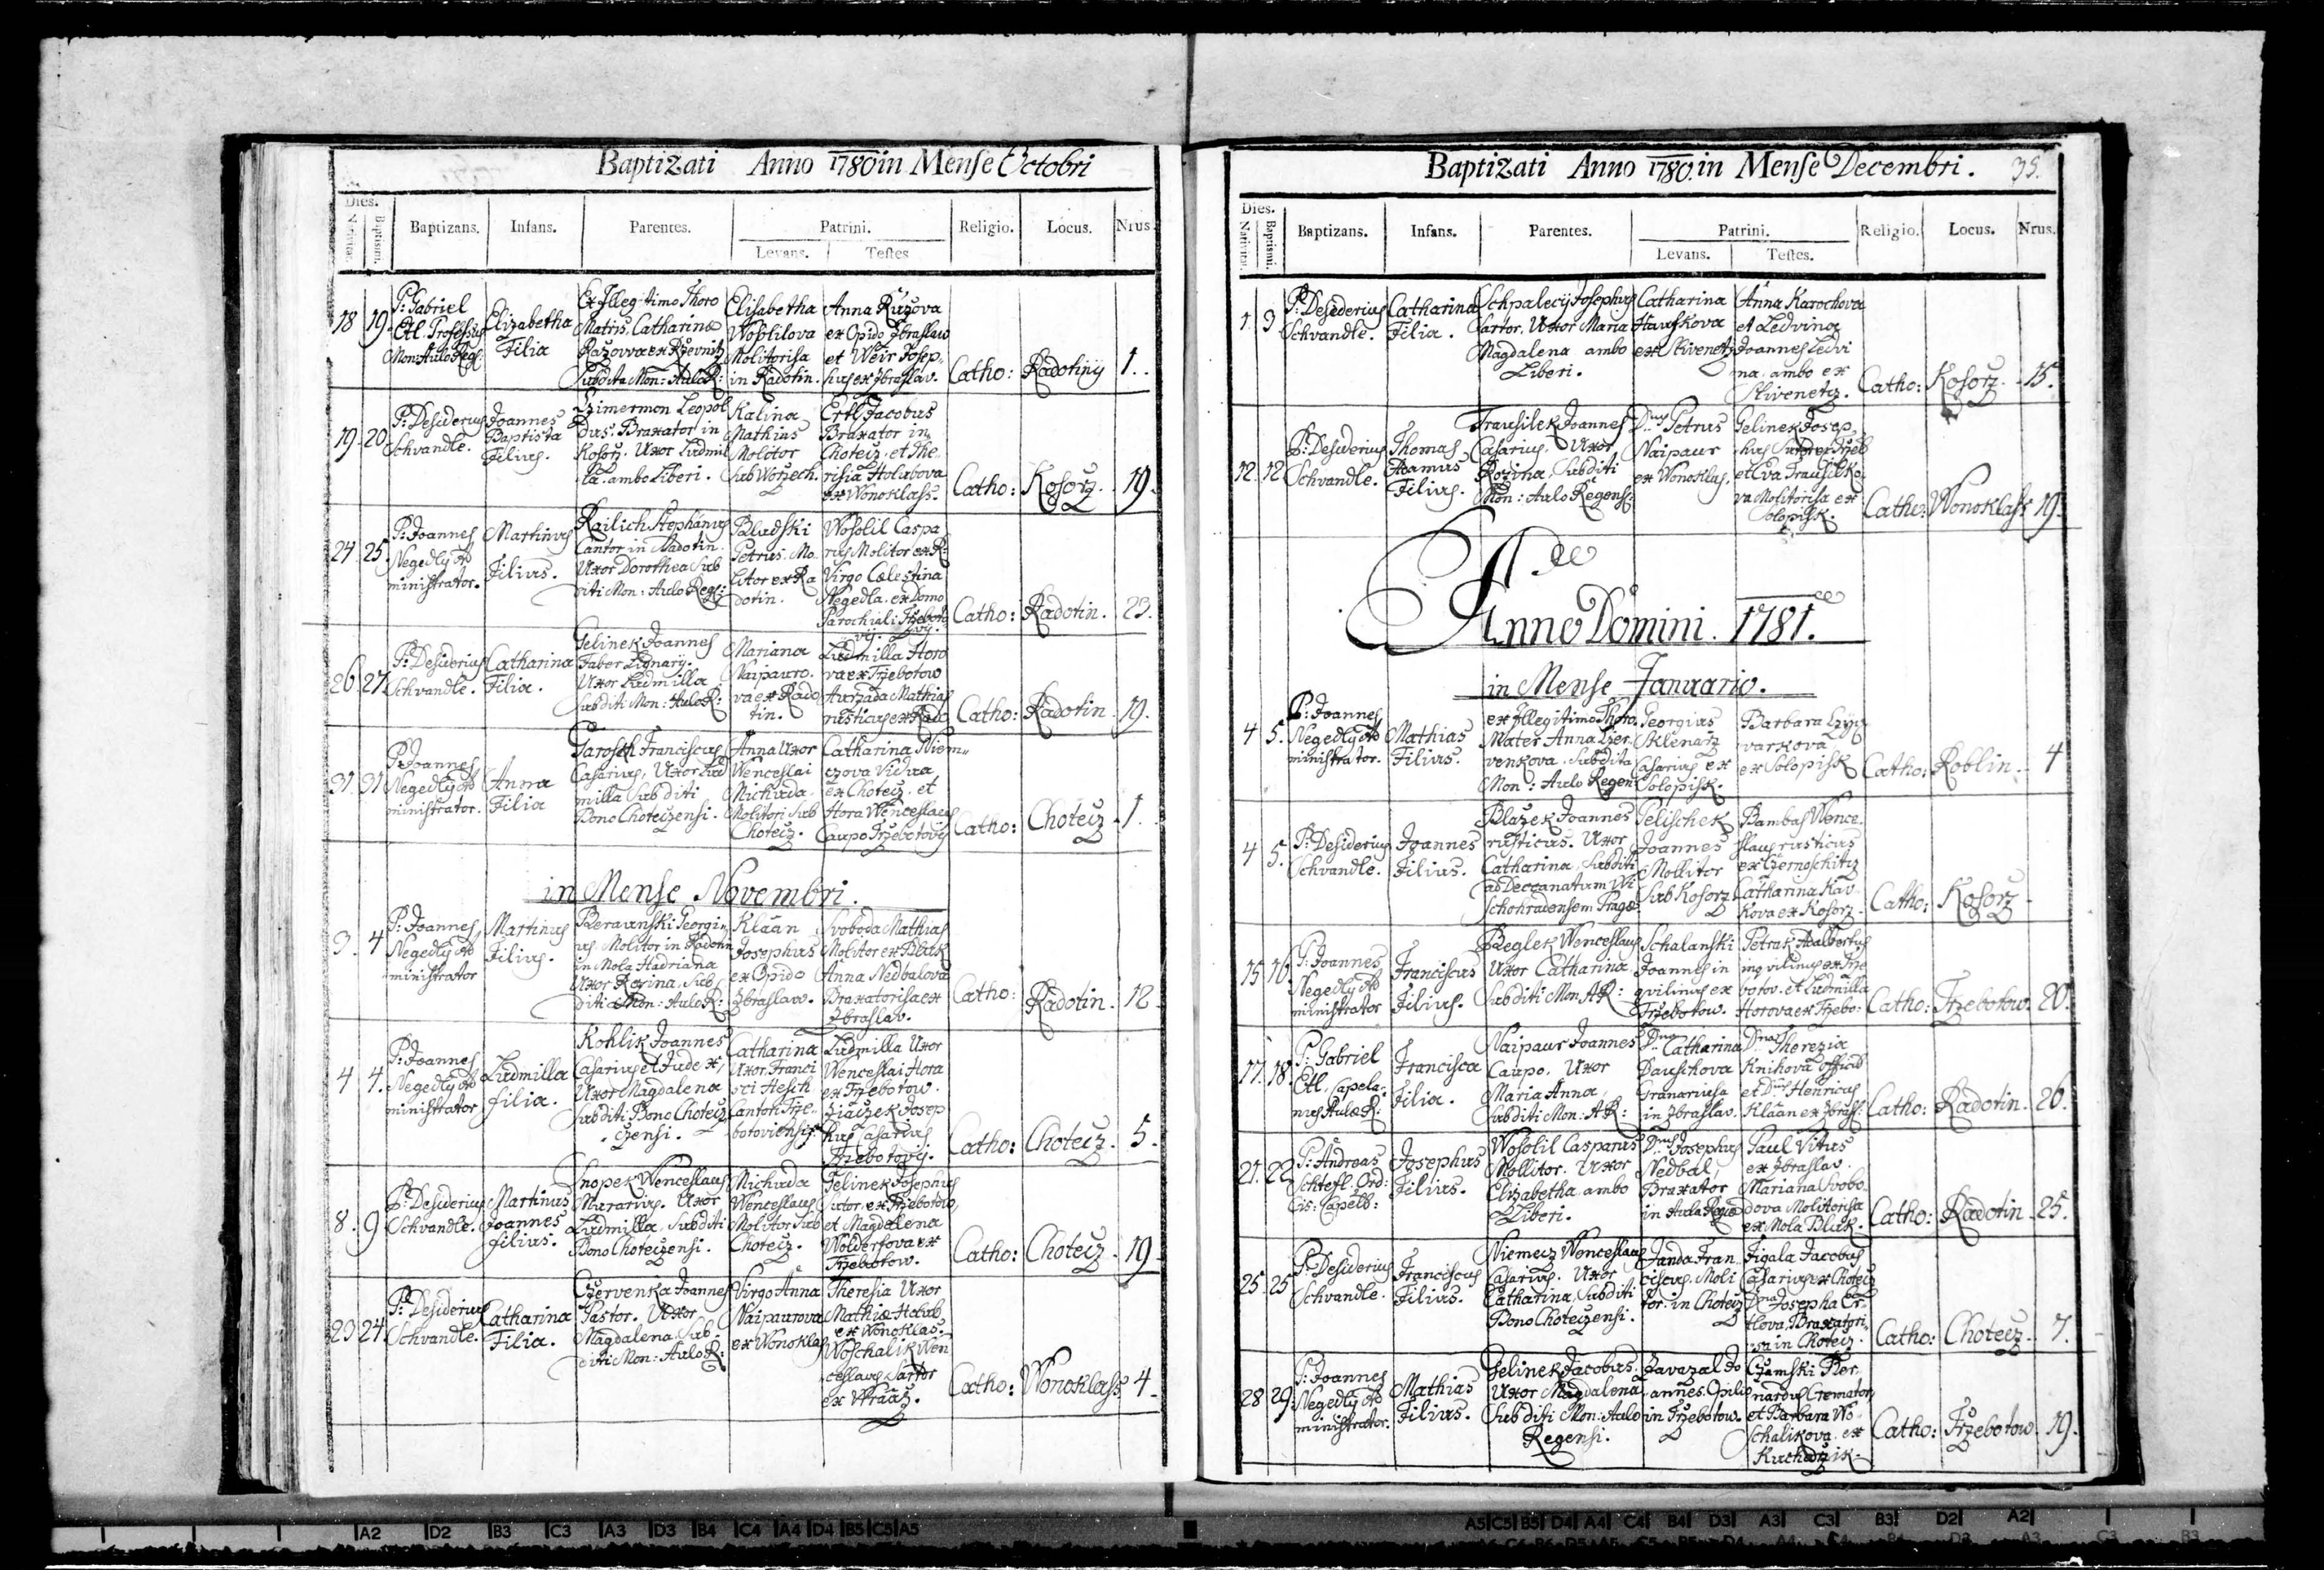 Baptizati Anno 1780 in Mense Octobri
Dies.
Baptismi.
Baptizans. Infans. Parentes. Patrini. Religio. Locus. Nrus.
Levans. Testes
18 19
P: Gabriel
Etl. Professus
Mon: Aulo Reg:
Elizabetha
Filia
Ex Illegitimo Thoro
Matris. Catharina
Subdita Mon: Aulo R:
Elisabetha
Wostilova
Molitorisa
in Radotin.
Anna Ružova
ex Opido Zbraslaw
et Weir Josep.
hus ex Zbraslav.
Catho: Radotiny 1.
19. 20
P: Desiderius
Schvandle.
Joannes
Baptista
Filius.
Czimermon Leopol
dus. Braxator in
Kosorz. Uxor Ludmil
la. ambo Liberi.
Kalina
Mathias
Molotor
Sub Worzech.
Ertl Jacobus
Braxator in
Chotecz. et The
risia Holubova
ex Wonoklass.
Catho: Kosorz. 19.
24. 25.
P: Joannes
Negedly Ad
ministrator.
Martinus
Filius.
Railich Stephanus
Cantor in Radotin.
Uxor Dorothea Sub
diti Mon: Aulo Reg:
Bludski
Petrus. Mo
litor ex Ra
dotin.
Wosstil Caspa
rus Molitor ex R:
Virgo Cælestina
Negedla. ex Domo
Parochiali Trzeboto
vij.
Catho: Radotin. 23.
26. 27.
P: Desiderius
Schvandle.
Catharina
Filia.
Jelinek Joannes
Faber Lignarij.
Uxor Ludmilla
Subditi Mon: Aulo R:
Mariana
Naipauro.
va ex Rado
tin.
Ludmilla Horo
va ex Trzebotow
Mathias
rusticus ex Rado
Catho: Radotin. 19.
31. 31
P: Joannes
Negedly Ad
ministrator.
Anna
Filia
Jarosch Franciscus
Casarius, Uxor Lud
milla Subditi
Bono Choteczensi.
Anna Uxor
Wenceslai
Michuda
Molitori Sub
Chotecz.
Catharina Niem
czova Vidua
ex Chotecz. et
Hora Wenceslaus
Caupo Trzebotovij
Catho: Chotecz. 1.
in Mense Novembri.
3. 4
P: Joannes
Negedly Ad
ministrator
Martinus
Filius.
Beraunski Georgi
us Molitor in Radotin
in Mola Hadriana
Uxor Rosina. Sub
diti Mon: Aulo R:
Klaan
Josephus
ex Opido
Zbraslaw.
Svoboda Mathias
Molitor ex Bluk
Anna Nedbalova
Braxatorisa ex
Zbraslav.
Catho: Radotin. 12
4 4.
P: Joannes
Negedly Ad
ministrator
Ludmilla
filia.
Kohlik Joannes
Casarius et Judex,
Uxor Magdalena
Subditi Bono Chotecz
czensi.
Catharina
Uxor Franci
sci Hesch
Cantori Trze
botoviensis
Ludmilla Uxor
Wenceslai Hora
ex Trzebotow.
Josep
hus Casarius
Trzebotovij.
Catho: Chotecz. 5.
8. 9
P: Desiderius
Schvandle.
Martinus
Joannes
filius.
Snopek Wenceslaus
Murarius. Uxor
Ludmilla. Subditi
Bono Choteczensi.
Michuda
Wenceslaus
Molitor Sub
Chotecz.
Jelinek Josephus
Sutor. ex Trzebotow,
et Magdalena
ex
Trzebotow.
Catho: Chotecz. 19
23 24
P: Desiderius
Schvandle.
Catharina
Filia.
Czervenka Joannes
Pastor. Uxor
Magdalena. Sub
diti Mon: Aulo R:
Virgo Anna
Naipaurova
ex Wonoklas
Theresia Uxor
Mathiæ Holub
ex Wonoklas.
Woschalik Wen
ceslaus Sartor
ex Wraaz.
Catho: Wonoklass 4
Baptizati Anno 1780. in Mense Decembri. 35.
Dies.
Nativitat. Baptismi.
Baptizans. Infans. Parentes. Patrini. Religio. Locus. Nrus.
Levans. Testes.
1. 3
P: Desiderius
Schvandle.
Catharina
Filia.
Schpalecij Josephus
Sartor. Uxor Maria
Magdalena ambo
Liberi.
Catharina
Hauskova
ex Skivenetz
Anna Karochova
et Ledvina
Joannes Ledvi
na. ambo ex
Skivenetz.
Catho: Kosorz. 15.
12. 12
P: Desiderius
Schvandle.
Thomas
Adamus
Filius.
Trausilek Joannes
Casarius. Uxor
Rozina. Subditi
Mon: Aulo Regens:
Dnus Petrus
Naipaur
ex Wonoklas.
Jelinek Josep.
hus Sutor ex Trzeb
et Eva Trausilko
va Molitorisa ex
Solopisk.
Catho: Wonoklass 19.
De
Anno Domini. 1781.
in Mense Januario.
4 5.
P: Joannes
Negedly Ad
ministrator.
Mathias
Filius.
ex Illegitimo Thoro.
Mater Anna Czer
venkova. Subdita
Mon: Aulo Regen
Georgius
Sklenarz
Casarius ex
Solopisk.
Barbara
ex Solopisk
Catho: Roblin. 4
4 5.
P: Desiderius
Schvandle.
Joannes
Filius.
Blazek Joannes
rusticus. Uxor
Catharina. Subditi
ad Deccanatum Wi
schohradensem Pragæ.
Pelischek
Joannes
Mollitor
Sub Kosorz
Bambas Wence.
slaus rusticus
ex Czernoschitz
Catharina Kav
kova ex Kosorz.
Catho: Kosorz
15 16
P: Joannes
Negedly Ad
ministrator
Franciscus
Filius.
Reglek Wenceslaus
Uxor Catharina
Subditi Mon. A R:
Schalanski
Joannes in
qvilinus ex
Trzebotow.
Petrak Adalbertus
inqvilinus ex Trze
botov. et Ludmilla
Horova ex Trzebo:
Catho: Trzebotow. 20.
17. 18.
P: Gabriel
Etl, Capela
nus Aulæ R:
Francisca
Filia.
Naipaur Joannes
Caupo. Uxor
Maria Anna,
Subditi Mon: A R:
Dna Catharina
Dauschova
Granariusa
in Zbraslav.
Dna Therezia
Knihova
et Dnus Henricus
Klaan ex Zbrass:
Catho: Radotin. 26.
21. 22
P: Andreas
Schtefl. Ord:
Cis: Capell:
Josephus
Filius.
Wosstil Casparus
Mollitor. Uxor
Elizabetha. ambo
Liberi.
Dnus Josephus
Nedbal,
Braxator
in Aula Regia
Paul Vitus
ex Zbraslav.
Mariana Svobo
dova Molitorisa
ex Mola Bluk.
Catho: Radotin. 25.
25. 25
P: Desiderius
Schvandle.
Franciscus
Filius.
Niemecz Wenceslaus
Casarius. Uxor
Catharina. Subditi
Bono Choteczensi.
Janda Fran
ciscus. Moli
tor. in Chotecz
Figala Jacobus
Casarius ex Chotecz
Dna Josepha Er
tlova. Braxatori
sa in Chotecz.
Catho: Chotecz. 7.
28 29
P: Joannes
Negedly Ad
ministrator.
Mathias
Filius.
Jelinek Jacobus.
Uxor Magdalena
Subditi Mon: Aulo
Regensi.
Zavazal Jo
annes. Opilio
in Trzebotow.
Czamski Ber
nardus Cremator,
et Barbara Wo
schalikova. ex
Kucharzik.
Catho: Trzebotow. 19.
A2 D2 B3 C3 A3 D3 B4 C4 A4 D4 B5 C5 A5
A5 C5 B5 D4 A4 C4 B4 D3 A3 C3 B3 D2 A2